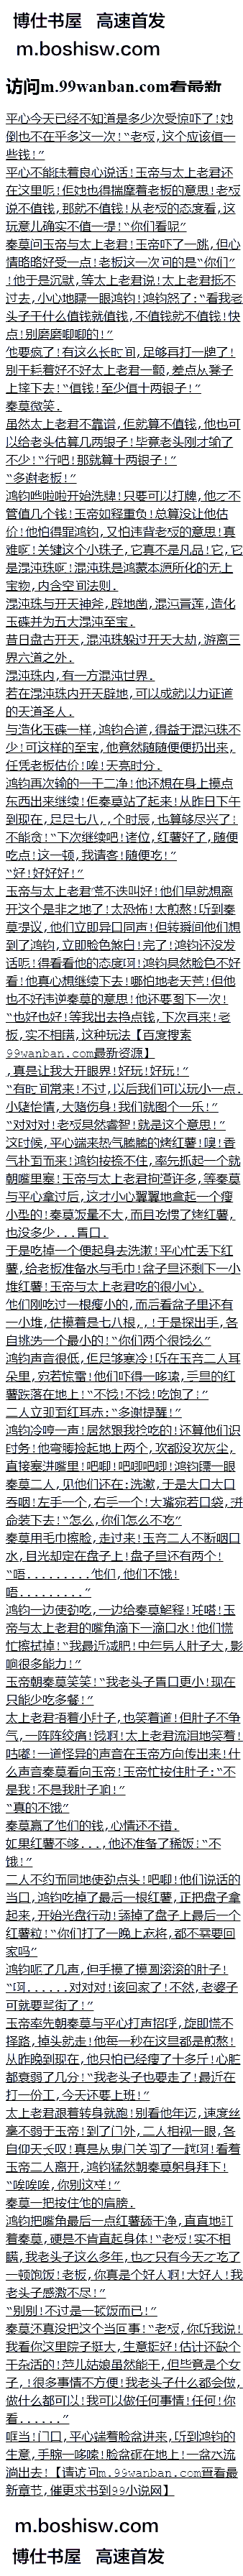 博仕书屋 高速首发
m.boshisw.com
访问m.99wanban.com看最新
平心今天已经不知道是多少次受惊吓了!她
倒也不在乎多这一次!“老板,这个应该值一
些钱!”
平心不能昧着良心说话!玉帝与太上老君还
在这里呢!但她也得揣摩着老板的意思!老板
说不值钱,那就不值钱!从老板的态度看,这
玩意儿确实不值一提!“你们看呢”
秦莫问玉帝与太上老君!玉帝吓了一跳,但心
情略略好受一点!老板这一次问的是“你们”
!他于是沉默,等太上老君说!太上老君抵不
过去,小心地瞟一眼鸿钧!鸿钧怒了:“看我老
头子干什么值钱就值钱,不值钱就不值钱!快
点!别磨磨唧唧的!”
他要疯了!有这么长时间,足够再打一牌了!
别千耗着好不好太上老君一颤,差点从凳子
上摔下去!“值钱!至少值十两银子!”
秦莫微笑.
虽然太上老君不靠谱,但就算不值钱,他也可
以给老头估算几两银子!毕竟老头刚才输了
不少!“行吧!那就算十两银子!”
“多谢老板!”
鸿钧哗啦啦开始洗牌!只要可以打牌,他才不
管值几个钱!玉帝如释重负!总算没让他估
价!他怕得罪鸿钧,又怕违背老板的意思!真
难啊!关键这个小珠子,它真不是凡品!它,它
是混沌珠啊!混沌珠是鸿蒙本源所化的无上
宝物,内含空间法则.
混沌珠与开天神斧,辟地凿,混沌青莲,造化
玉碟并为五大混沌至宝.
昔日盘古开天,混沌珠躲过开天大劫,游离三
界六道之外.
混沌珠内,有一方混沌世界.
若在混沌珠内开天辟地,可以成就以力证道
的天道圣人.
与造化玉碟一样,鸿钧合道,得益于混沌珠不
少!可这样的至宝,他竟然随随便便扔出来,
任凭老板估价!唉!天亮时分.
鸿钧再次输的一干二净!他还想在身上摸点
东西出来继续!但秦莫站了起来!从昨日下午
到现在,足足七八,,个时辰,也算够尽兴了!
不能贪!“下次继续吧!诸位,红薯好了,随便
吃点!这一顿,我请客!随便吃!”
“好!好好好!”
玉帝与太上老君慌不迭叫好!他们早就想离
开这个是非之地了!太恐怖!太煎熬!听到秦
莫提议,他们立即异口同声!但转瞬间他们想
到了鸿钧,立即脸色煞白!完了!鸿钧还没发
话呢!得看看他的态度啊!鸿钧果然脸色不好
看!他真心想继续下去!哪怕地老天荒!但他
也不好违逆秦莫的意思!他还要图下一次!
“也好也好!等我出去挣点钱,下次再来!老
板,实不相瞒,这种玩法【百度搜索
99wanban.com最新资源】
,真是让我大开眼界!好玩!好玩!”
“有时间常来!不过,以后我们可以玩小一点.
小赌怡情,大赌伤身!我们就图个一乐!”
“对对对!老板果然睿智!就是这个意思!”
这时候,平心端来热气腾腾的烤红薯!嗅!香
气扑面而来!鸿钧按捺不住,率先抓起一个就
朝嘴里塞!玉帝与太上老君拘谨许多,等秦莫
与平心拿过后,这才小心翼翼地拿起一个瘦
小型的!秦莫饭量不大,而且吃惯了烤红薯,
也没多少...胃口.
于是吃掉一个便起身去洗漱!平心忙丢下红
薯,给老板准备水与毛巾!盆子里还剩下一小
堆红薯!玉帝与太上老君吃的很小心.
他们刚吃过一根瘦小的,而后看盆子里还有
一小堆,估摸着是七八根,,!于是探出手,各
自挑选一个最小的!“你们两个很饿么”
鸿钧声音很低,但足够寒冷!听在玉帝二人耳
朵里,宛若惊雷!他们吓得一哆嗦,手里的红
薯跌落在地上!“不饿!不饿!吃饱了!”
二人立即面红耳赤:“多谢提醒!”
鸿钧冷哼一声!居然跟我抢吃的!还算他们识
时务!他弯腰捡起地上两个,吹都没吹灰尘,
直接塞进嘴里!吧唧!吧唧吧唧!鸿钧瞟一眼
秦莫二人,见他们还在:洗漱,于是大口大口
吞咽!左手一个,右手一个!大嘴宛若口袋,拼
命装下去!“怎么,你们怎么不吃”
秦莫用毛巾擦脸,走过来!玉帝二人不断咽口
水,目光却定在盘子上!盘子里还有两个!
“唔.........他们,他们不饿!
唔.........”
鸿钧一边使劲吃,一边给秦莫解释!吧嗒!玉
帝与太上老君的嘴角滴下一滴口水!他们慌
忙擦拭掉!“我最近减肥!中年男人肚子大,影
响很多能力!”
玉帝朝秦莫笑笑!“我老头子胃口更小!现在
只能少吃多餐!”
太上老君捂着小肚子,也笑着道!但肚子不争
气,一阵阵绞痛!饿啊!太上老君流泪地笑着!
咕嘟!一道怪异的声音在玉帝方向传出来!什
么声音秦莫看向玉帝!玉帝忙按住肚子:“不
是我!不是我肚子响!”
“真的不饿”
秦莫赢了他们的钱,心情还不错.
如果红薯不够...,他还准备了稀饭!“不
饿!”
二人不约而同地使劲点头!吧唧!他们说话的
当口,鸿钧吃掉了最后一根红薯,正把盘子拿
起来,开始光盘行动!舔掉了盘子上最后一个
红薯粒!“你们打了一晚上麻将,都不需要回
家吗”
鸿钧呃了几声,但手摸了摸圆滚滚的肚子!
“啊......对对对!该回家了!不然,老婆子
可就要骂街了!”
玉帝率先朝秦莫与平心打声招呼,旋即慌不
择路,掉头就走!他每一秒在这里都是煎熬!
从昨晚到现在,他只怕已经瘦了十多斤!心脏
都衰弱了几分!“我老头子也要走了!最近在
打一份工,今天还要上班!”
太上老君跟着转身就跑!别看他年迈,速度丝
毫不弱于玉帝!到了门外,二人相视一眼,各
自仰天长叹!真是从鬼门关闯了一趟啊!看着
玉帝二人离开,鸿钧猛然朝秦莫躬身拜下!
“唉唉唉,你别这样!”
秦莫一把按住他的肩膀.
鸿钧把嘴角最后一点红薯舔干净,直直地盯
着秦莫,硬是不肯直起身体!“老板!实不相
瞒,我老头子这么多年,也才只有今天才吃了
一顿饱饭!老板,你真是个好人啊!大好人!我
老头子感激不尽!”
“别别!不过是一顿饭而已!”
秦莫还真没把这个当回事!“老板,你听我说!
我看你这里院子挺大,生意挺好!估计还缺个
干杂活的!萍儿姑娘虽然能干,但毕竟是个女
子,!很多事情不方便!我老头子什么都会做,
做什么都可以!我可以做任何事情!任何!你
看......”
哐当!门口,平心端着脸盆进来,听到鸿钧的
生意,手腕一哆嗦!脸盆砸在地上!一盆水流
淌出去!【请访问m.99wanban.com查看最
新章节,催更求书到99小说网】
m.boshisw.com
博仕书屋 高速首发